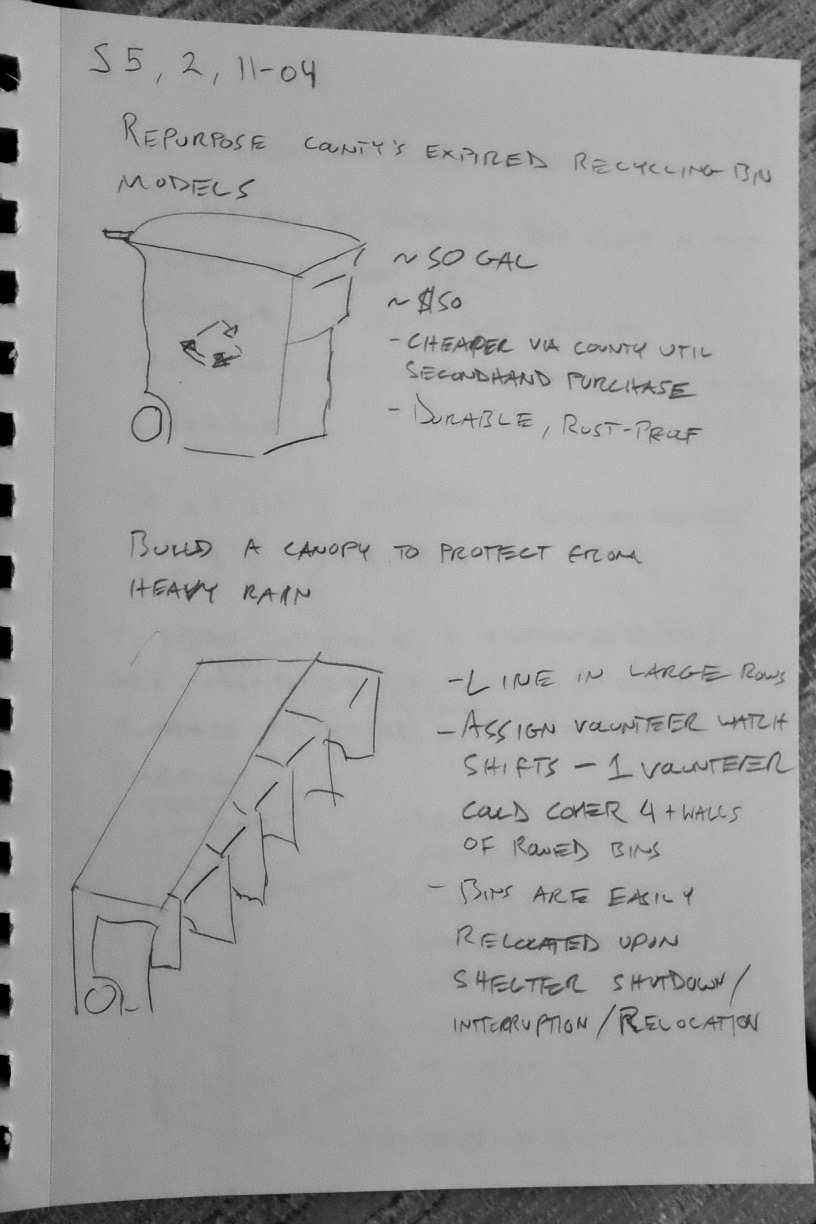 S5, 2, 11-04
REPURPOSE COUNTY'S EXPIRED RECYCLING BIN
MODELS
~50 GAL
~$50
- CHEAPER VIA COUNTY UTIL
SECONDHAND PURCHASE
- DURABLE, RUST-PROOF
BUILD A CANOPY TO PROTECT FROM
HEAVY RAIN
- LINE IN LARGE ROWS
- ASSIGN VOLUNTEER WATCH
SHIFTS - 1 VOLUNTEER
COULD COVER 4+ WALLS
OF ROWED BINS
- BINS ARE EASILY
RELOCATED UPON
SHELTER SHUTDOWN/
INTERRUPTION/RELOCATION